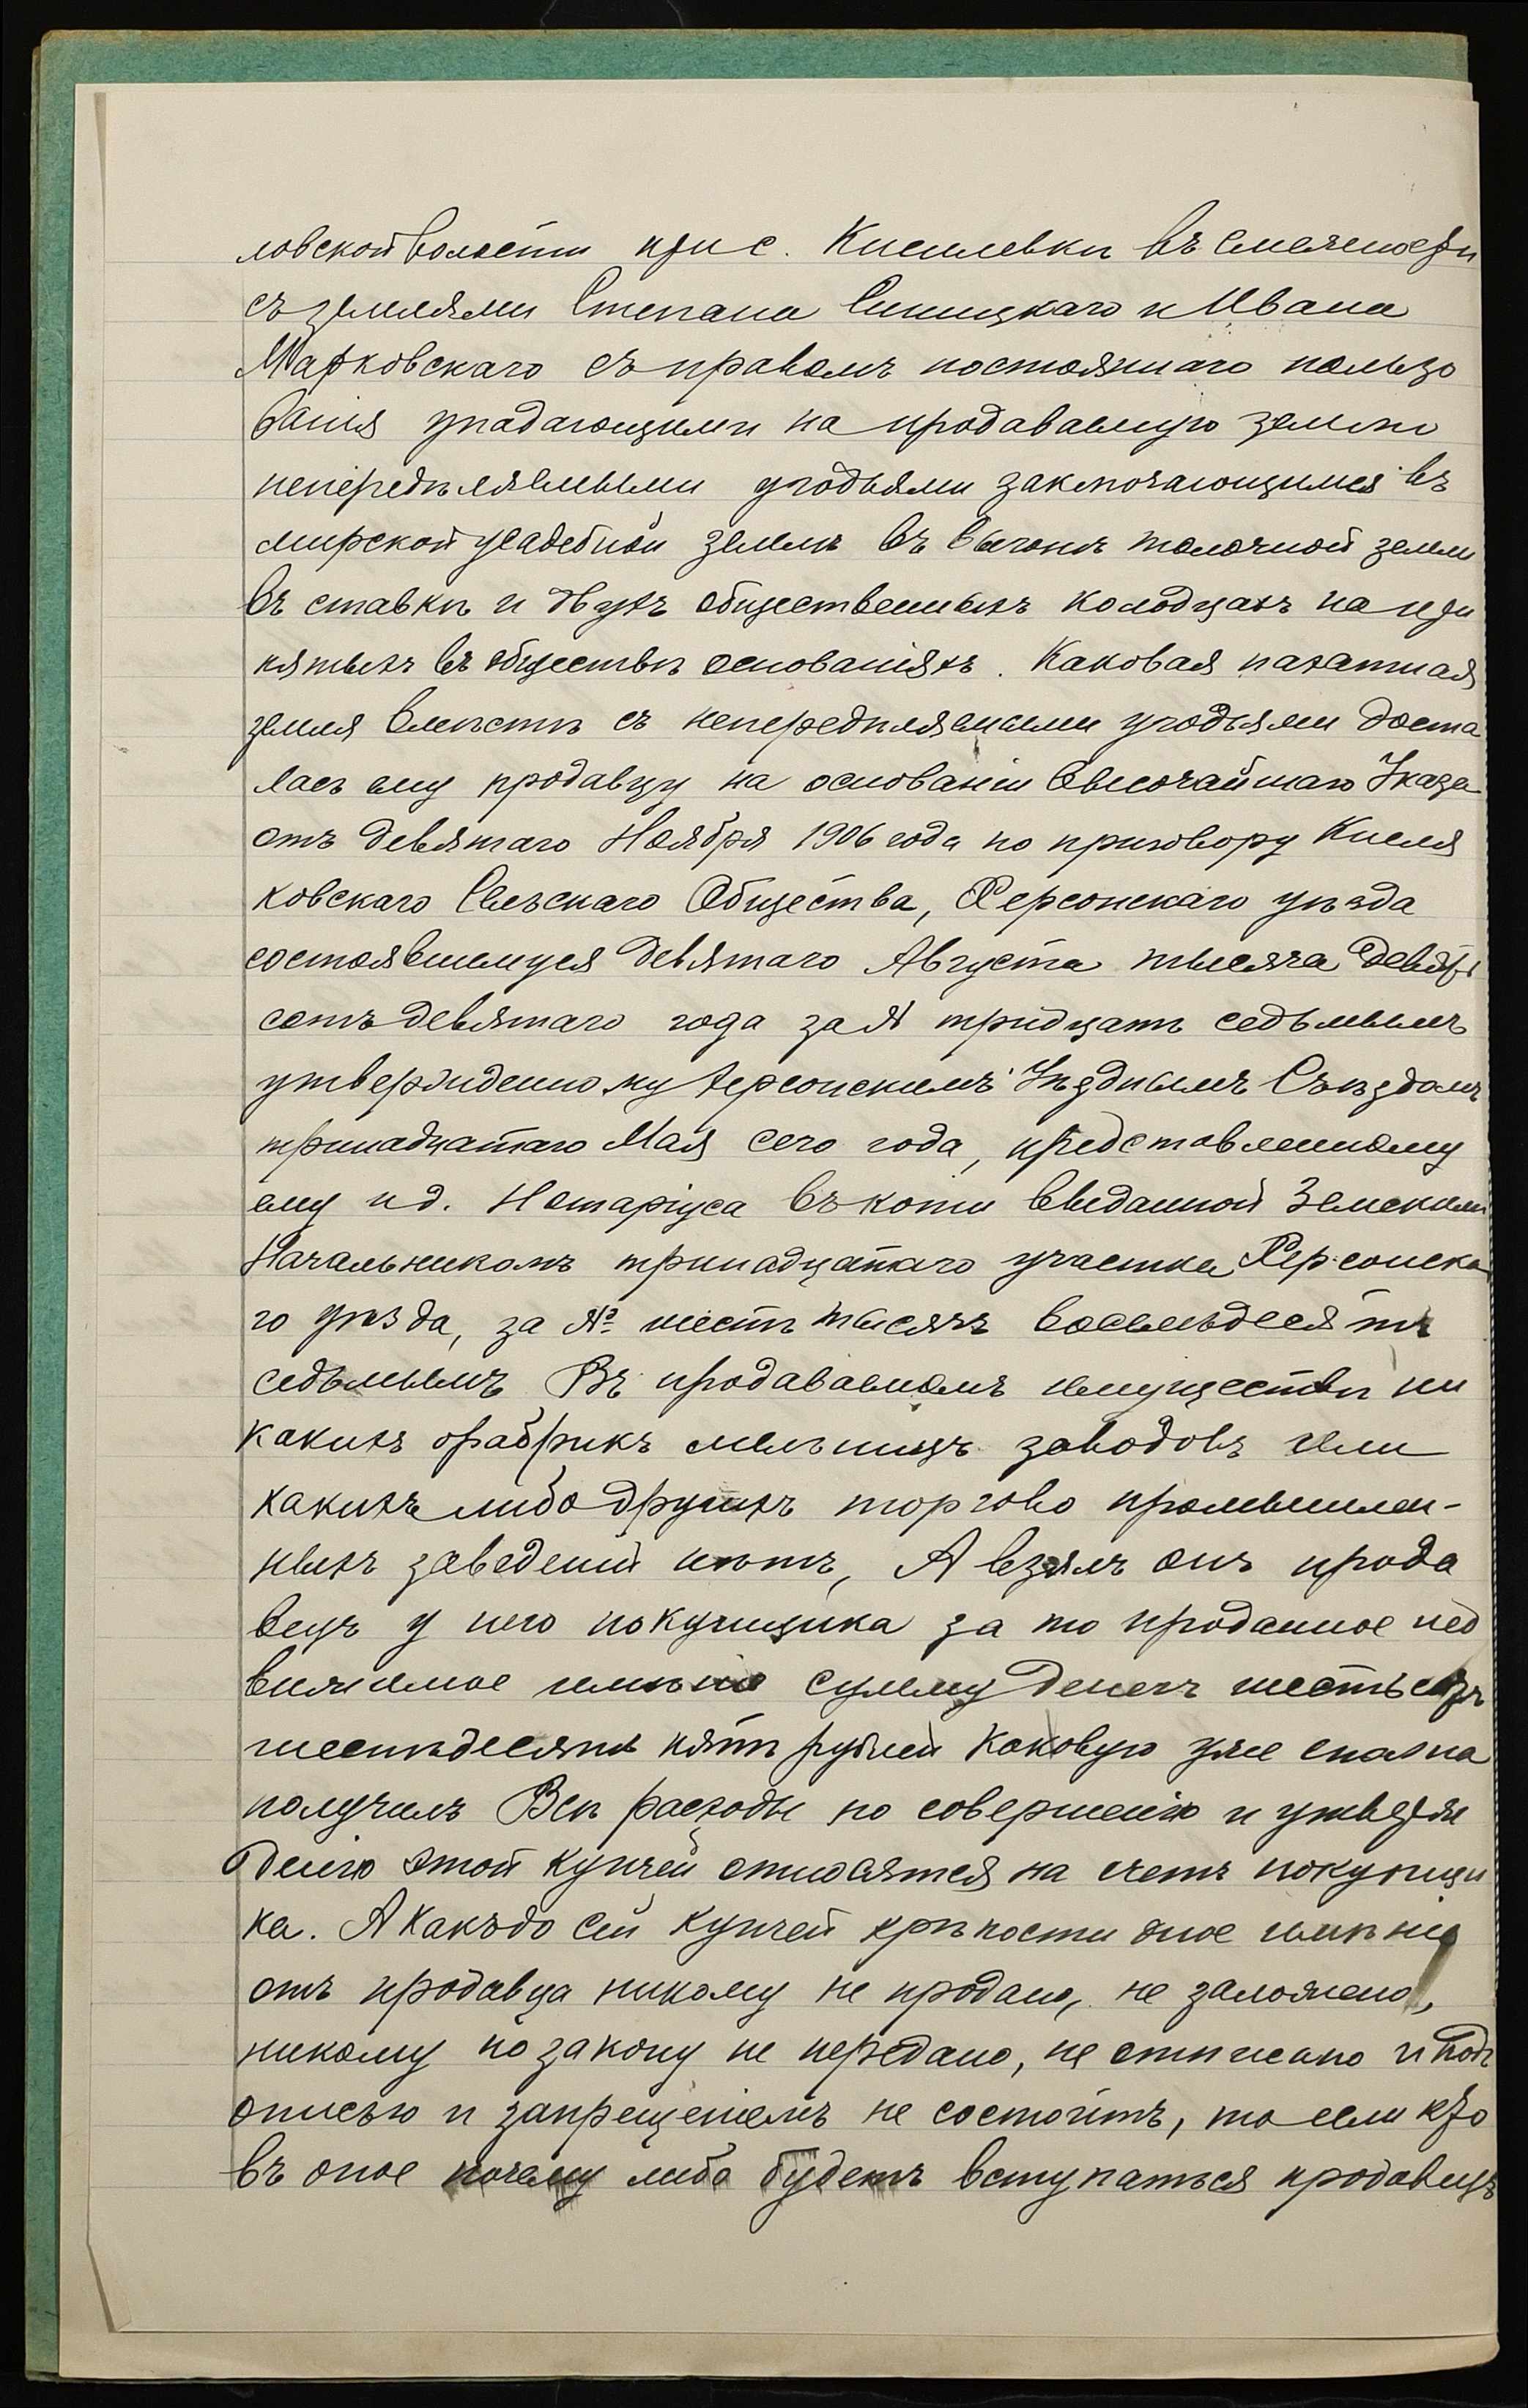 ловской волости при с. Киселевки въ смежности
съ землями Степана Синицкаго и Ивана
Марковскаго съ правомъ постояннаго пользо
ванія упадающими на продаваемую землю
непередѣляемыми угодьями заключающимися въ
мирской усадебной землѣ въ выгонѣ толочной земли
въ ставкѣ и двухъ общественныхъ колодцахъ на при
нятыхъ въ обществѣ основаніяхъ. Каковая пахатная
земля вмѣстѣ съ непередѣляемыми угодьями доста
лась ему продавцу на основаніи Высочайшаго Указа
отъ девятаго Ноября 1906 года по приговору Киселя
ковскаго Сельскаго Общества, Херсонскаго уѣзда
состоявшемуся девятаго Августа тысяча девять
сотъ девятаго года за № тридцать седьмымъ
утвержденному Херсонскимъ Уѣзднымъ Съѣздомъ
тринадцатаго Мая сего года, представленному
ему и д. Нотаріуса въ копіи выданной Земскимъ
Начальникомъ тринадцатаго участка Херсонска
го уѣзда, за № шесть тысячъ восемьдесятъ
седьмымъ Въ продаваемомъ имуществѣ ни
какихъ фабрикъ мельницъ заводовъ или
какихъ либо другихъ торгово промышлен-
ныхъ заведеній нѣтъ, А взялъ онъ прода
вецъ у него покупщика за то проданное нед
вижимое имѣніе сумму денегъ шестьсотъ
шестьдесятъ пять рублей каковую уже сполна
получилъ Всѣ расходы по совершенію и утвер
жденію этой купчей относятся на счетъ покупщи
ка. А какъ до сей купчей крѣпости оное имѣніе
отъ продавца никому не продано, не заложено,
никому по закону не передано, не отписано и подъ
описью и запрещеніемъ не состоитъ, то если кто
въ оное почему либо будетъ вступаться продавецъ